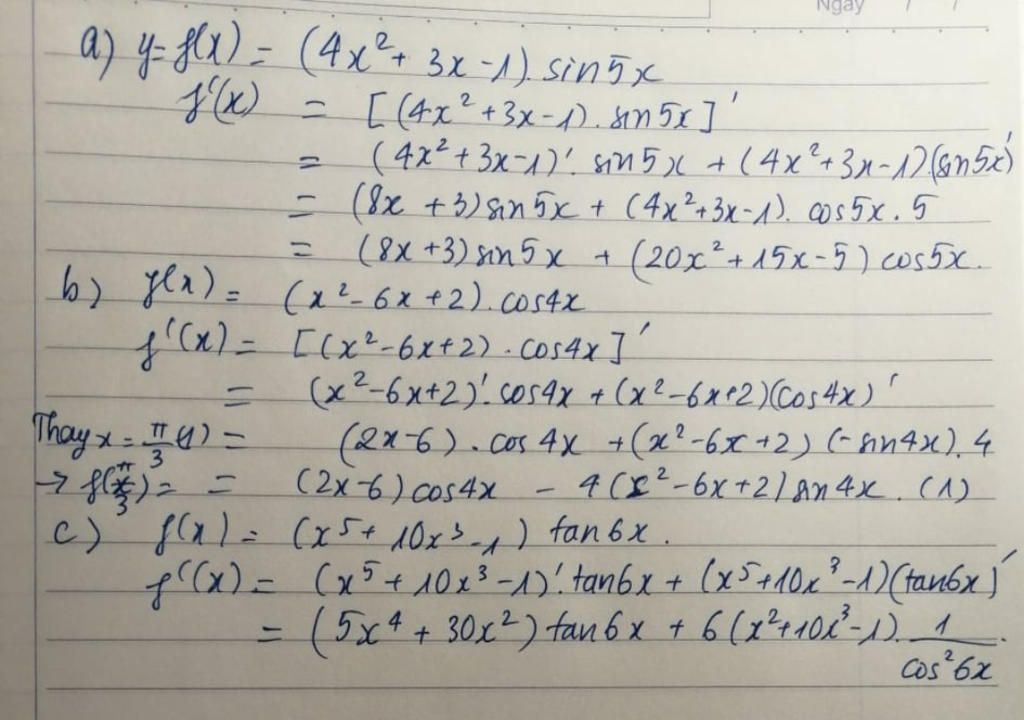 Ngày / /
a) y = f(x) = (4x² + 3x - 1). sin5x
f'(x) = [(4x² + 3x - 1). sin5x]'
= (4x² + 3x - 1)'. sin5x + (4x² + 3x - 1).(sin5x)'
= (8x + 3) sin5x + (4x² + 3x - 1). cos5x. 5
= (8x + 3) sin5x + (20x² + 15x - 5) cos5x.
b) f(x) = (x² - 6x + 2). cos4x
f'(x) = [(x² - 6x + 2). cos4x]'
= (x² - 6x + 2)'. cos4x + (x² - 6x + 2)(cos4x)'
Thay x = π/3 (1) = (2x - 6). cos4x + (x² - 6x + 2) (-sin4x). 4
→ f(π/3) = = (2x - 6) cos4x - 4(x² - 6x + 2) sin4x. (1)
c) f(x) = (x⁵ + 10x³ - 1) tan6x.
f'(x) = (x⁵ + 10x³ - 1)'. tan6x + (x⁵ + 10x³ - 1)(tan6x)'
= (5x⁴ + 30x²) tan6x + 6(x² + 10x³ - 1). 1/cos²6x.